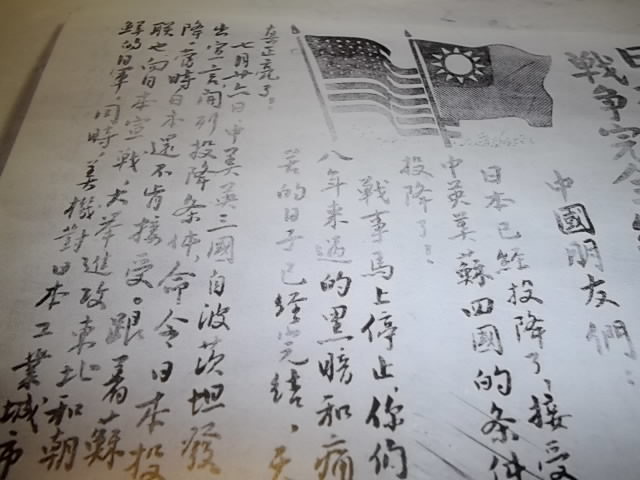 日
戰争完全
中國朋友們：
日本已經投降了，接受
中英美蘇四國的条件
投降了！
戰事馬上停止，你們
八年來過的黑暗和痛
苦的日子已經完結，天
真正亮了！
七月廿六日，中美英三國自波茨坦發
出宣言，開列投降条件，命令日本投
降，當時日本還不肯接受。跟着蘇
联也向日本宣戰，大举進攻東北和朝
鮮的日軍，同時，美機對日本工業城市